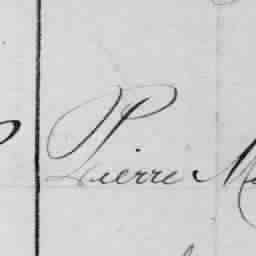 Pierre M